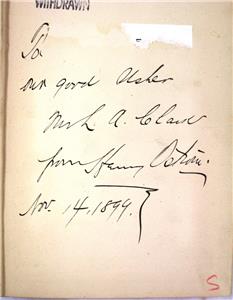 WITHDRAWN
To
our good Usher
Mr L. A. Clark
from Henry
Nov. 14, 1899.
S